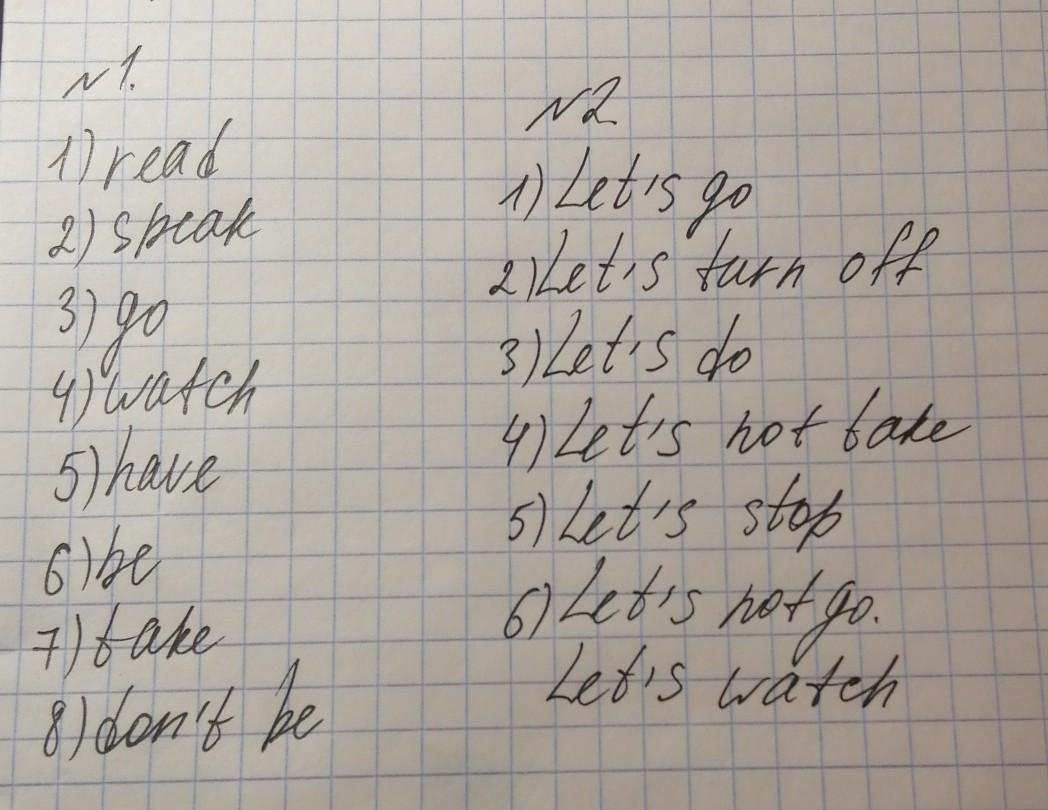 N1.
1) read
2) speak
3) go
4) watch
5) have
6) be
7) take
8) don't be
N2
1) Let's go
2) Let's turn off
3) Let's do
4) Let's not take
5) Let's stop
6) Let's not go.
Let's watch